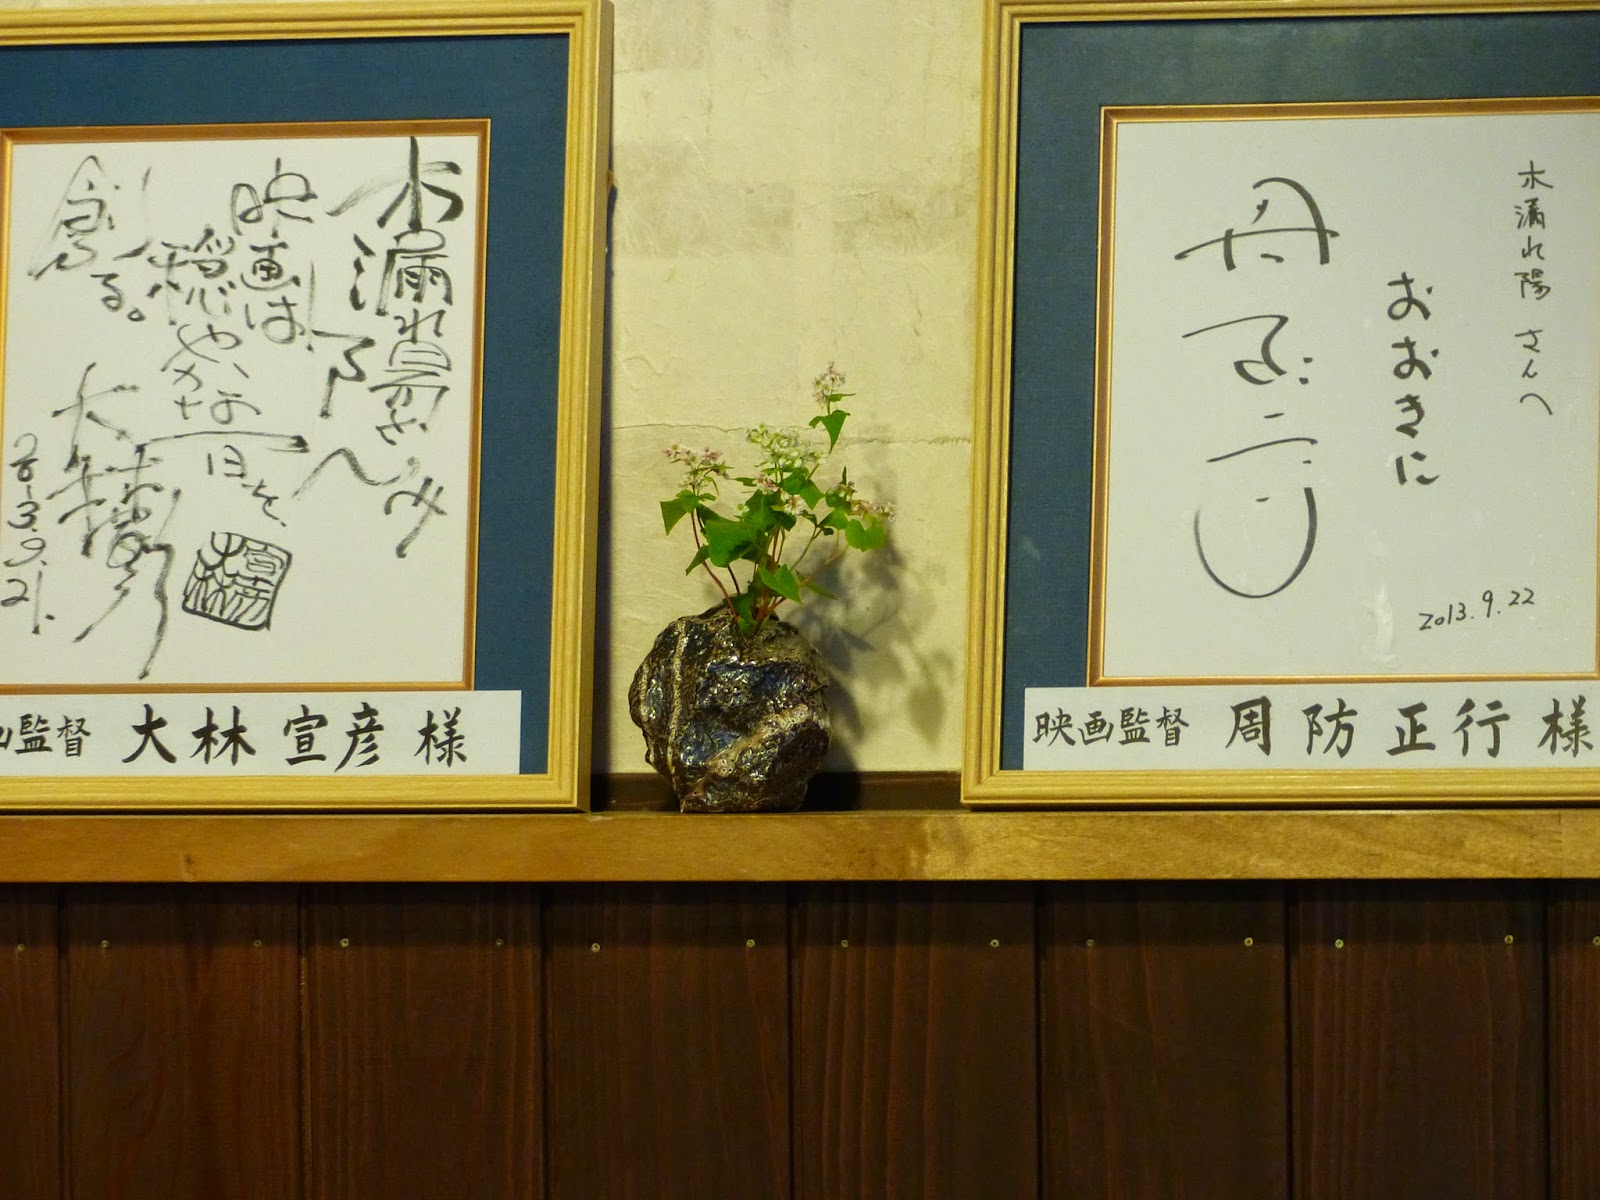 木漏れ陽さんへ
映画は、
穏やかな一日を、
創る。
大林宣彦
監督 大林 宣彦 様
木漏れ陽 さんへ
おおきに
2013.9.22
映画監督 周防正行 様